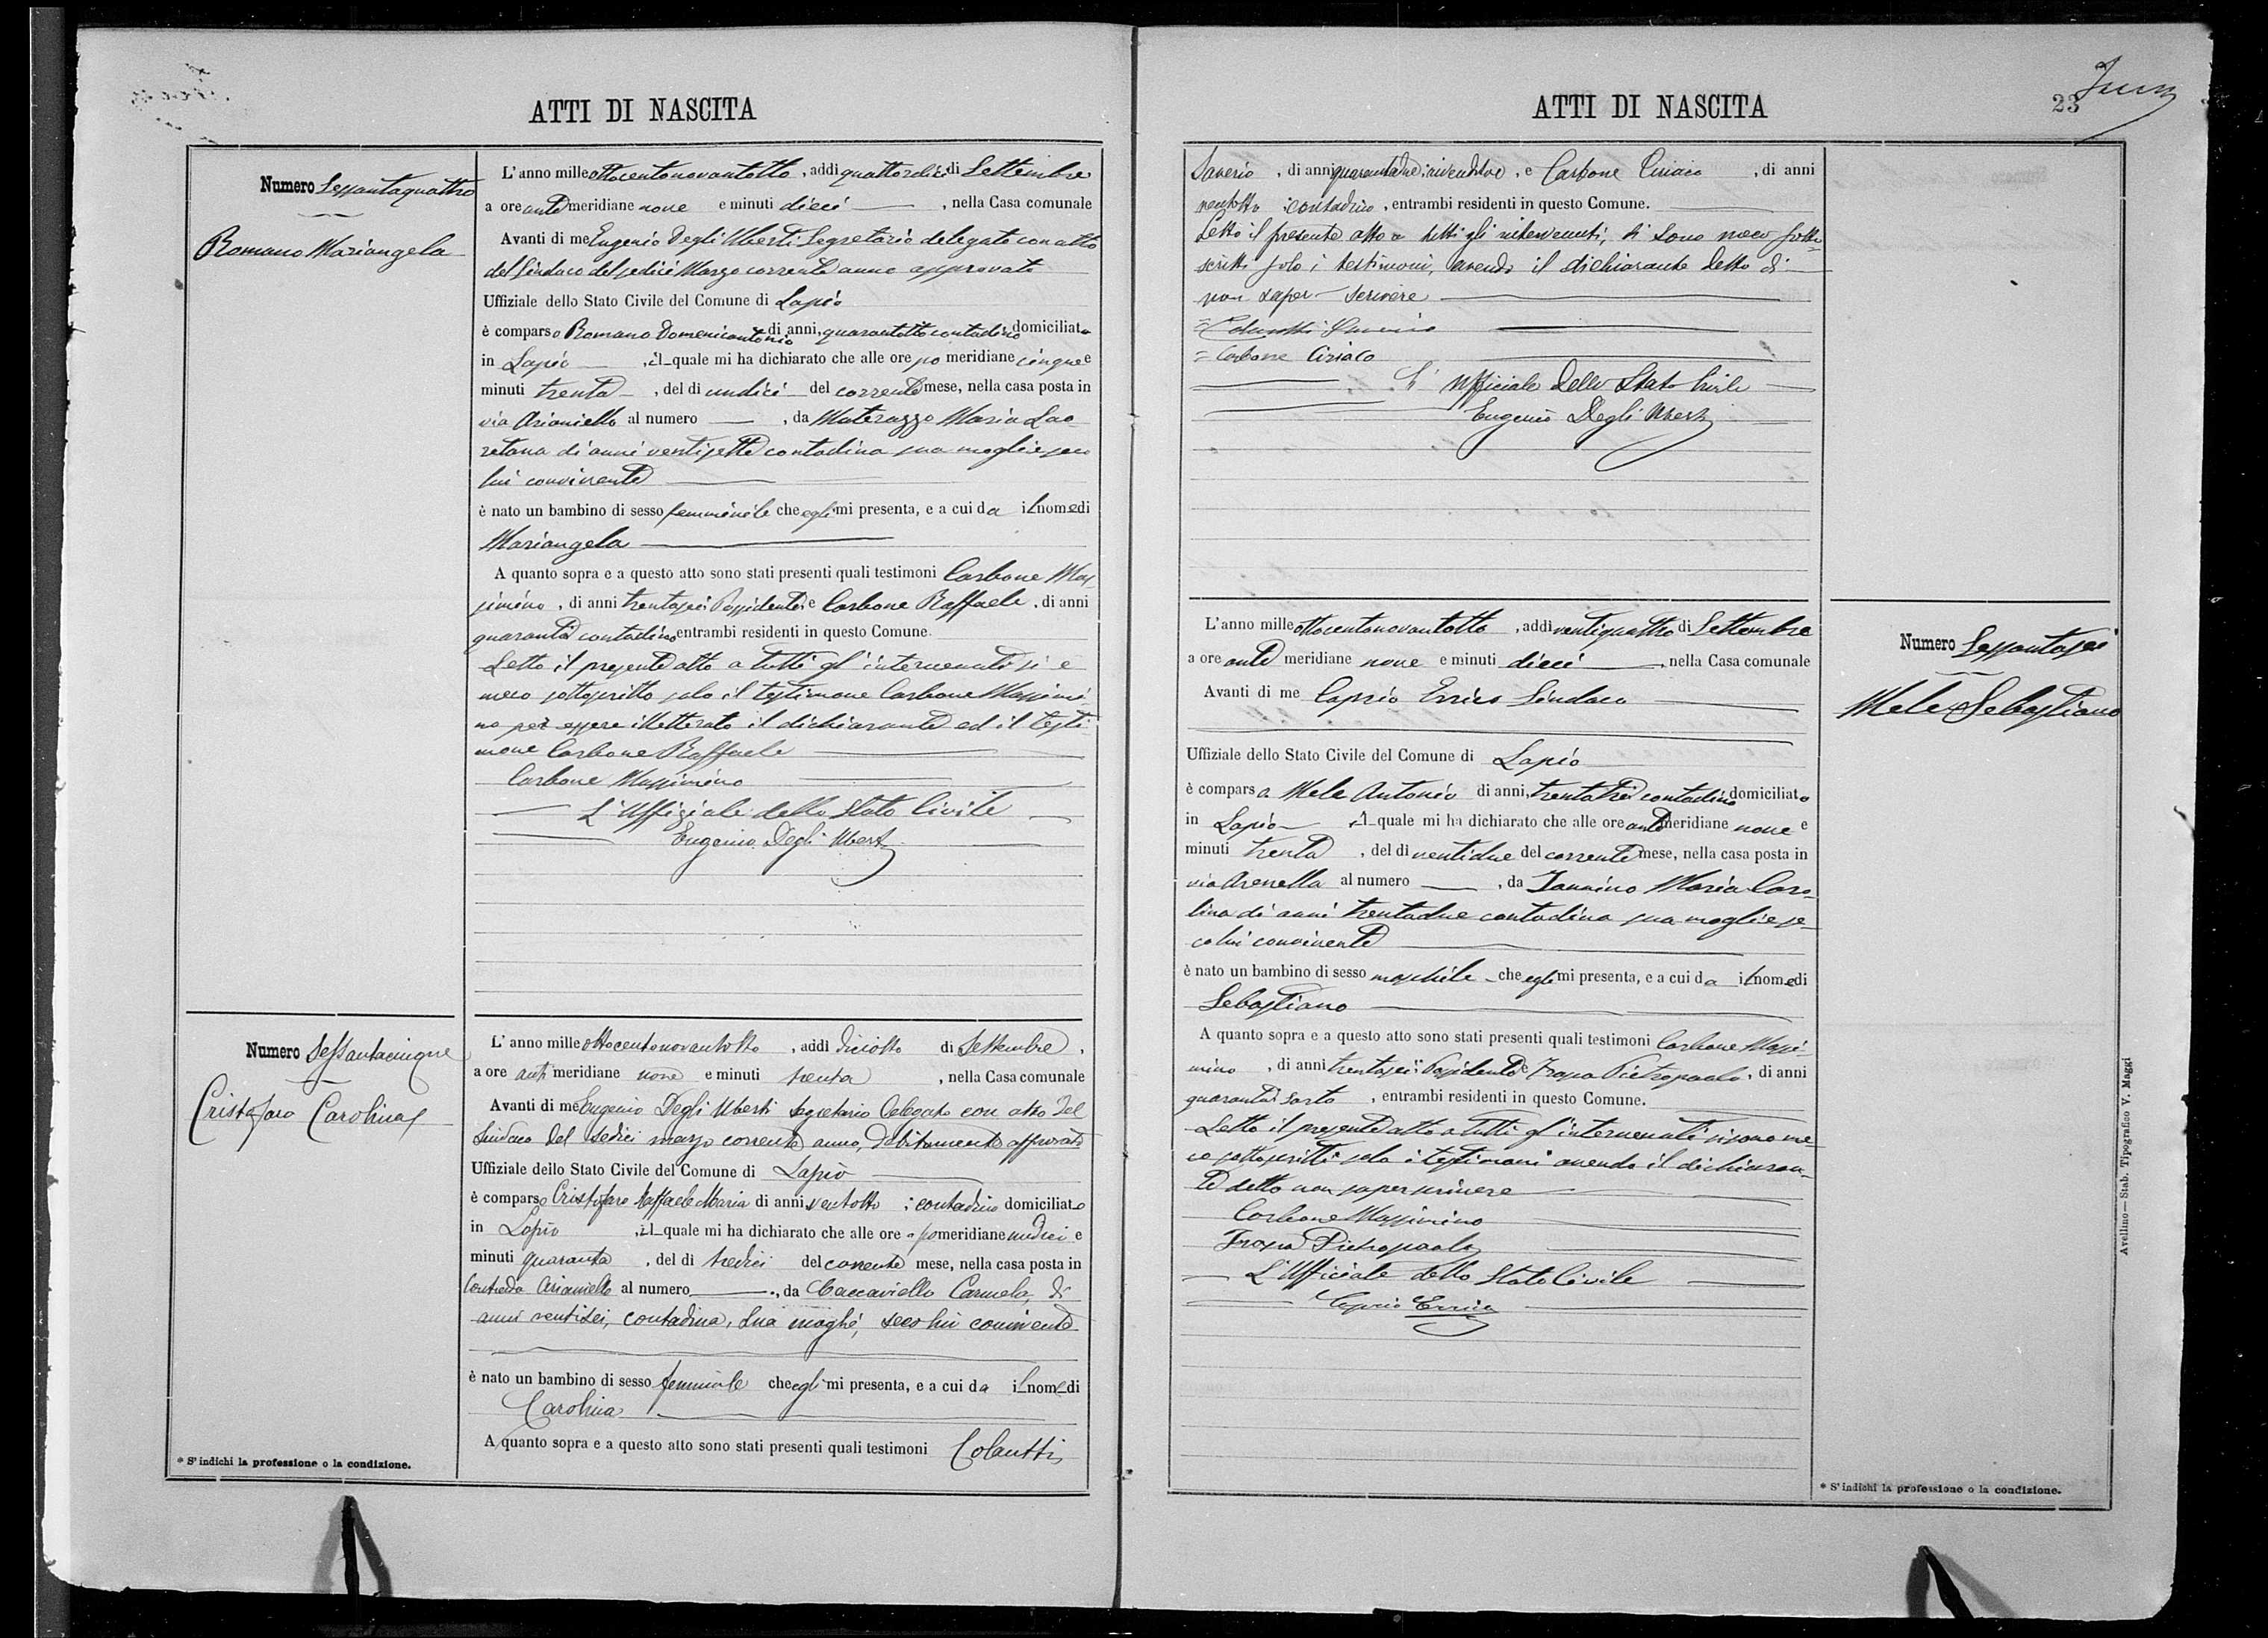 ATTI DI NASCITA
Numero Sessantaquattro
Romano Mariangela
L'anno mille ottocentonovantotto, addì quattordici di Settembre
a ore ante meridiane nove e minuti dieci, nella Casa comunale
Avanti di me Eugenio Degli Uberti Segretario delegato con atto
del Sindaco del sedici Marzo corrente anno approvato
Uffiziale dello Stato Civile del Comune di Lapio
è comparso Romano Domenicantonio di anni, quarantotto contadino domiciliato
in Lapio, il quale mi ha dichiarato che alle ore po meridiane cinque e
minuti trenta, del dì undici del corrente mese, nella casa posta in
via Arianiello al numero, da Materazzo Maria Lao-
retana di anni ventisette contadina sua moglie seco
lui convivente
è nato un bambino di sesso femminile che egli mi presenta, e a cui da il nome di
Mariangela
A quanto sopra e a questo atto sono stati presenti quali testimoni Carbone Mas-
simino, di anni trentasei Possidente e Carbone Raffaele, di anni
quaranta contadino entrambi residenti in questo Comune.
Letto il presente atto a tutti gl'intervenuti si è
meco sottoscritto solo il testimone Carbone Massimi-
no per essere illetterato il dichiarante ed il testi-
mone Carbone Raffaele
Carbone Massimino
L'Uffiziale dello Stato Civile
Eugenio Degli Uberti
Numero Sessantacinque
Cristofaro Carolina
L'anno mille ottocentonovantotto, addì diciotto di Settembre,
a ore anti meridiane nove e minuti trenta, nella Casa comunale
Avanti di me Eugenio Degli Uberti Segretario Delegato con atto del
Sindaco del sedici marzo corrente anno, debitamente approvato
Uffiziale dello Stato Civile del Comune di Lapio
è comparso Cristofaro Raffaele Maria di anni ventotto; contadino domiciliato
in Lapio, il quale mi ha dichiarato che alle ore pomeridiane undici e
minuti quaranta, del dì tredici del corrente mese, nella casa posta in
Contrada Arianiello al numero, da Caccaviello Carmela, di
anni ventisei, contadina, sua moglie, seco lui convivente
è nato un bambino di sesso femminile che egli mi presenta, e a cui da il nome di
Carolina
A quanto sopra e a questo atto sono stati presenti quali testimoni Colantti
* S'indichi la professione o la condizione.
ATTI DI NASCITA
23
Saverio, di anni quarantadue; rivenditore, e Carbone Ciriaco, di anni
ventotto contadino, entrambi residenti in questo Comune.
Letto il presente atto a tutti gli intervenuti, si sono meco sotto-
scritti solo i testimoni, avendo il dichiarante detto di
non saper scrivere
= Saverio
= Carbone Ciriaco
L'Ufficiale dello Stato Civile
Eugenio Degli Uberti
L'anno mille ottocentonovantotto, addì ventiquattro di Settembre
a ore ante meridiane nove e minuti dieci, nella Casa comunale
Avanti di me Caprio Errico Sindaco
Uffiziale dello Stato Civile del Comune di Lapio
è comparso Mele Antonio di anni, trentatre contadino domiciliato
in Lapio, il quale mi ha dichiarato che alle ore ante meridiane nove e
minuti trenta, del dì ventidue del corrente mese, nella casa posta in
via Arenella al numero, da Iannino Maria Caro-
lina di anni trentadue contadina sua moglie se-
co lui convivente
è nato un bambino di sesso maschile che egli mi presenta, e a cui da il nome di
Sebastiano
A quanto sopra e a questo atto sono stati presenti quali testimoni Carbone Massi-
mino, di anni trentasei Possidente e Pietropaolo, di anni
quaranta sarto, entrambi residenti in questo Comune.
Letto il presente atto a tutti gl'intervenuti si sono me-
co sottoscritti solo i testimoni avendo il dichiaran-
te detto non saper scrivere
Carbone Massimino
Pietropaolo
L'Ufficiale dello Stato Civile
Caprio Errico
Numero Sessantasei
Mele Sebastiano
* S'indichi la professione o la condizione.
Avellino—Stab. Tipografico V. Maggi